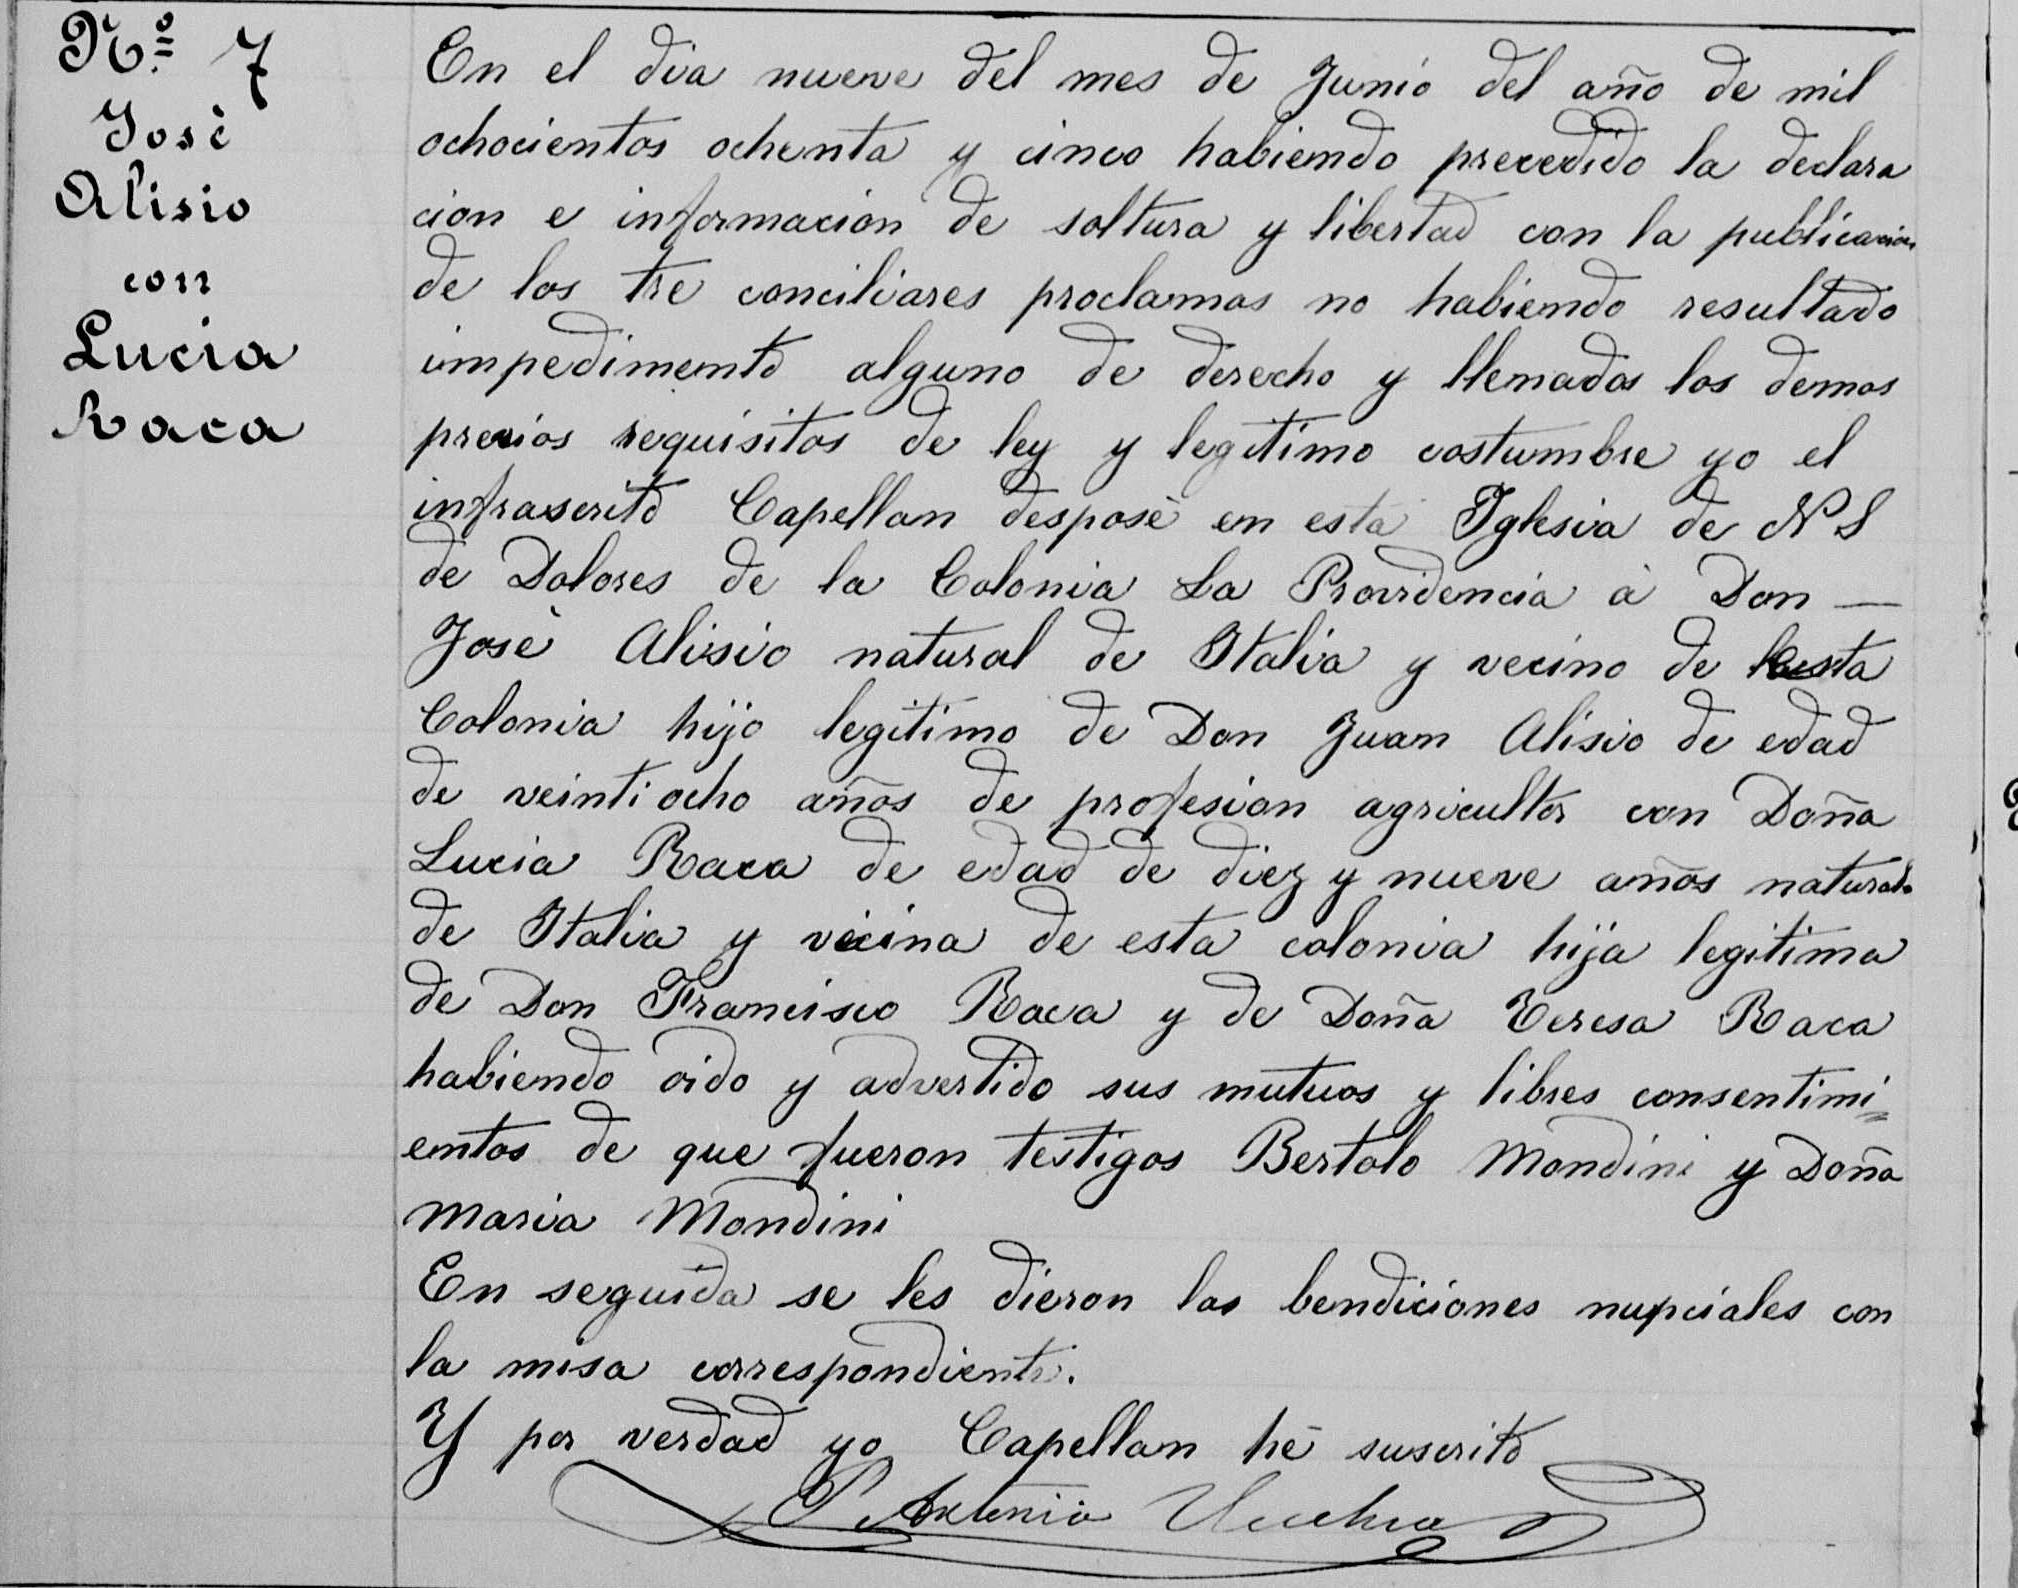 Nº 7
Josè
Alisio
con
Lucia
Raca
En el dia nueve del mes de Junio del año de mil
ochocientos ochenta y cinco habiendo precedido la declara
cion e informacion de soltura y libertad con la publicacion
de los tre conciliares proclamas no habiendo resultado
impedimento alguno de derecho y llenados los demas
previos requisitos de ley y legitimo costumbre yo el
infrascrito Capellan desposè en esta Iglesia de N S
de Dolores de la Colonia La Providencia à Don —
Josè Alisio natural de Italia y vecino de esta
Colonia hijo legitimo de Don Juan Alisio de edad
de veinti ocho años de profesion agricultor con Doña
Lucia Raca de edad de diez y nueve años natural
de Italia y vecina de esta colonia hija legitima
de Don Francisco Raca y de Doña Teresa Raca
habiendo oido y advertido sus mutuos y libres consentimi=
entos de que fueron testigos Bertolo Mondini y Doña
Maria Mondini
En seguida se les dieron las bendiciones nupciales con
la misa correspondiente.
Y por verdad yo Capellan hè suscrito
P Antonio